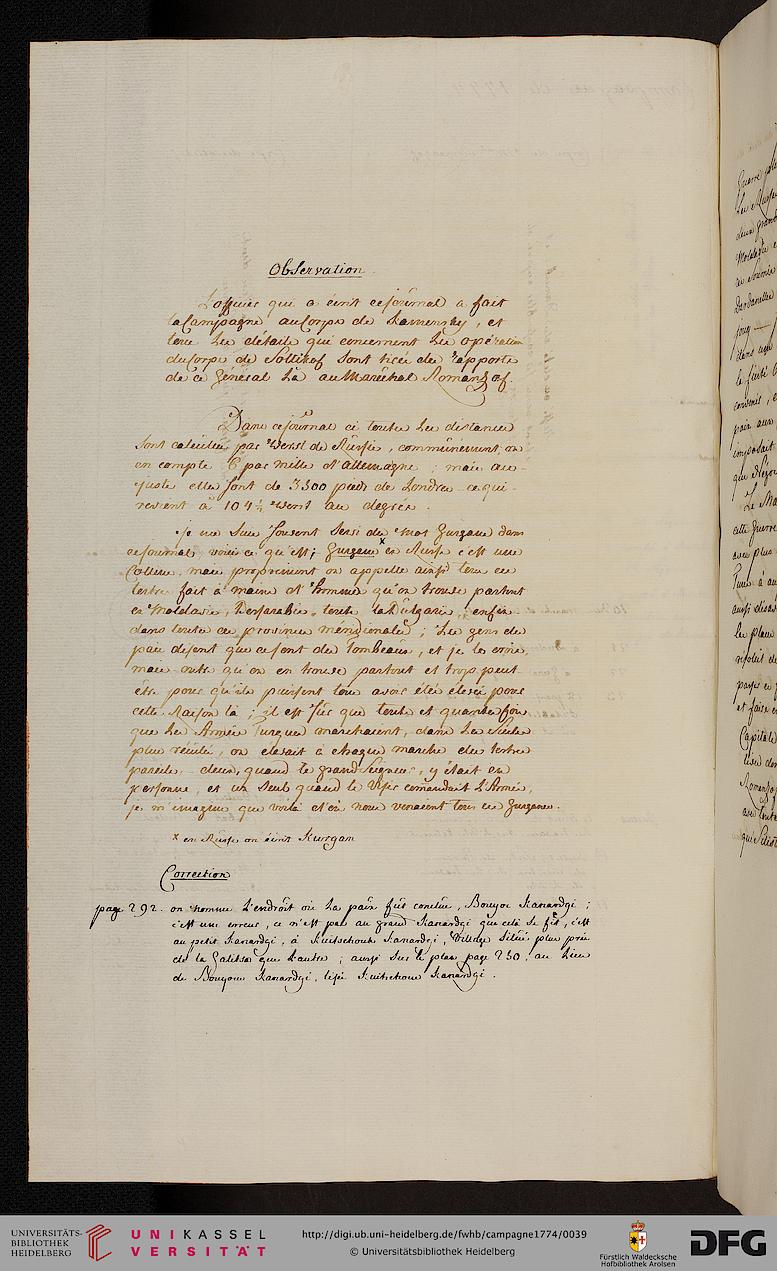 Observation.
L'officier qui a écrit ce journal a fait
la Campagne au Corps de Kamensky, et
tous les détails qui concernent les opération
du Corps de Soltikof sont tirés des rapports
de ce Général là au Maréchal Romanzof.
Dans ce journal ci toutes les distances
sont calculées par Werst de Russie, communément on
en compte 6 par mille d'allemagne; mais au
juste elles sont de 3500 pieds de Londres ce qui
revient à 104 1/2 Werst au degrès.
Je me suis souvent servi du mot Gurgane dans
ce journal, voici ce qu'est; Gurgane x en Russe c'est une
Colline, mais proprement on appelle ainsi tous ces
tertres fait à mains d'homme qu'on trouve partout
en Moldavie, Bessarabie, toute la Bulgarie, enfin
dans toutes ces provinces méridionales; Les gens du
païs disent que ce sont des tombeaux, et je le crois,
mais outre qu'on en trouve partout et trop peut
être pour qu'ils puissent tous avoir étés élevés pour
cette Raison là; il est sûr que toutes et quantes fois
que les Armées Turques marchaient, dans les Siècles
plus reculés, on elevait à chaque marche des tertres
pareils, deux, quand le grand Seigneur, y étoit en
personne, et un seul quand le Visir comandait l'Armée,
je m'imagine que voilà d'où nous venaient tous ces Gurganes.
x en Russe on écrit Kurgan
Correction
page 292. on nomme l'endroit où la paix fût conclue, Bouyoc Kanardgi;
c'est une erreur, ce n'est pas au grand Kanardgi que cela se fit, c'est
au petit Kanardgi, à Kuitschouk Kanardgi, Village situé plus près
de la Galitza que l'autre; aussi sur le plan page 230, au lieu
de Bouyouc Kanardgi, lisés Kuitschouc Kanardgi.
UNIVERSITÄTS-
BIBLIOTHEK
HEIDELBERG
UNIKASSEL
VERSITÄT
http://digi.ub.uni-heidelberg.de/fwhb/campagne1774/0039
© Universitätsbibliothek Heidelberg
Fürstlich Waldecksche
Hofbibliothek Arolsen
DFG